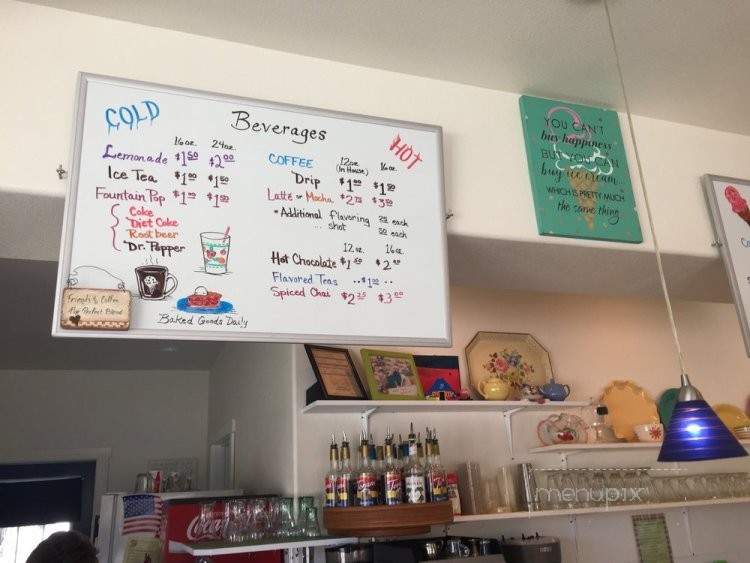 COLD
Beverages
16oz. 24oz.
Lemonade $1.50 $2.00
Ice Tea $1.00 $1.50
Fountain Pop $1.00 $1.50
Coke
Diet Coke
Root beer
Dr. Pepper
Friends & Coffee
The Perfect Blend
Baked Goods Daily
HOT
COFFEE 12oz (In House) 16oz.
Drip $1.00 $1.50
Latté or Mocha $2.75
*Additional flavoring each
.. shot 50 each
12oz. 16oz.
Hot Chocolate $2.00
Flavored Teas ..$1.00..
Spiced Chai $3.00
YOU CAN'T
buy happiness
BUT YOU CAN
buy ice cream...
WHICH IS PRETTY MUCH
the same thing
Coca-Cola
menupix